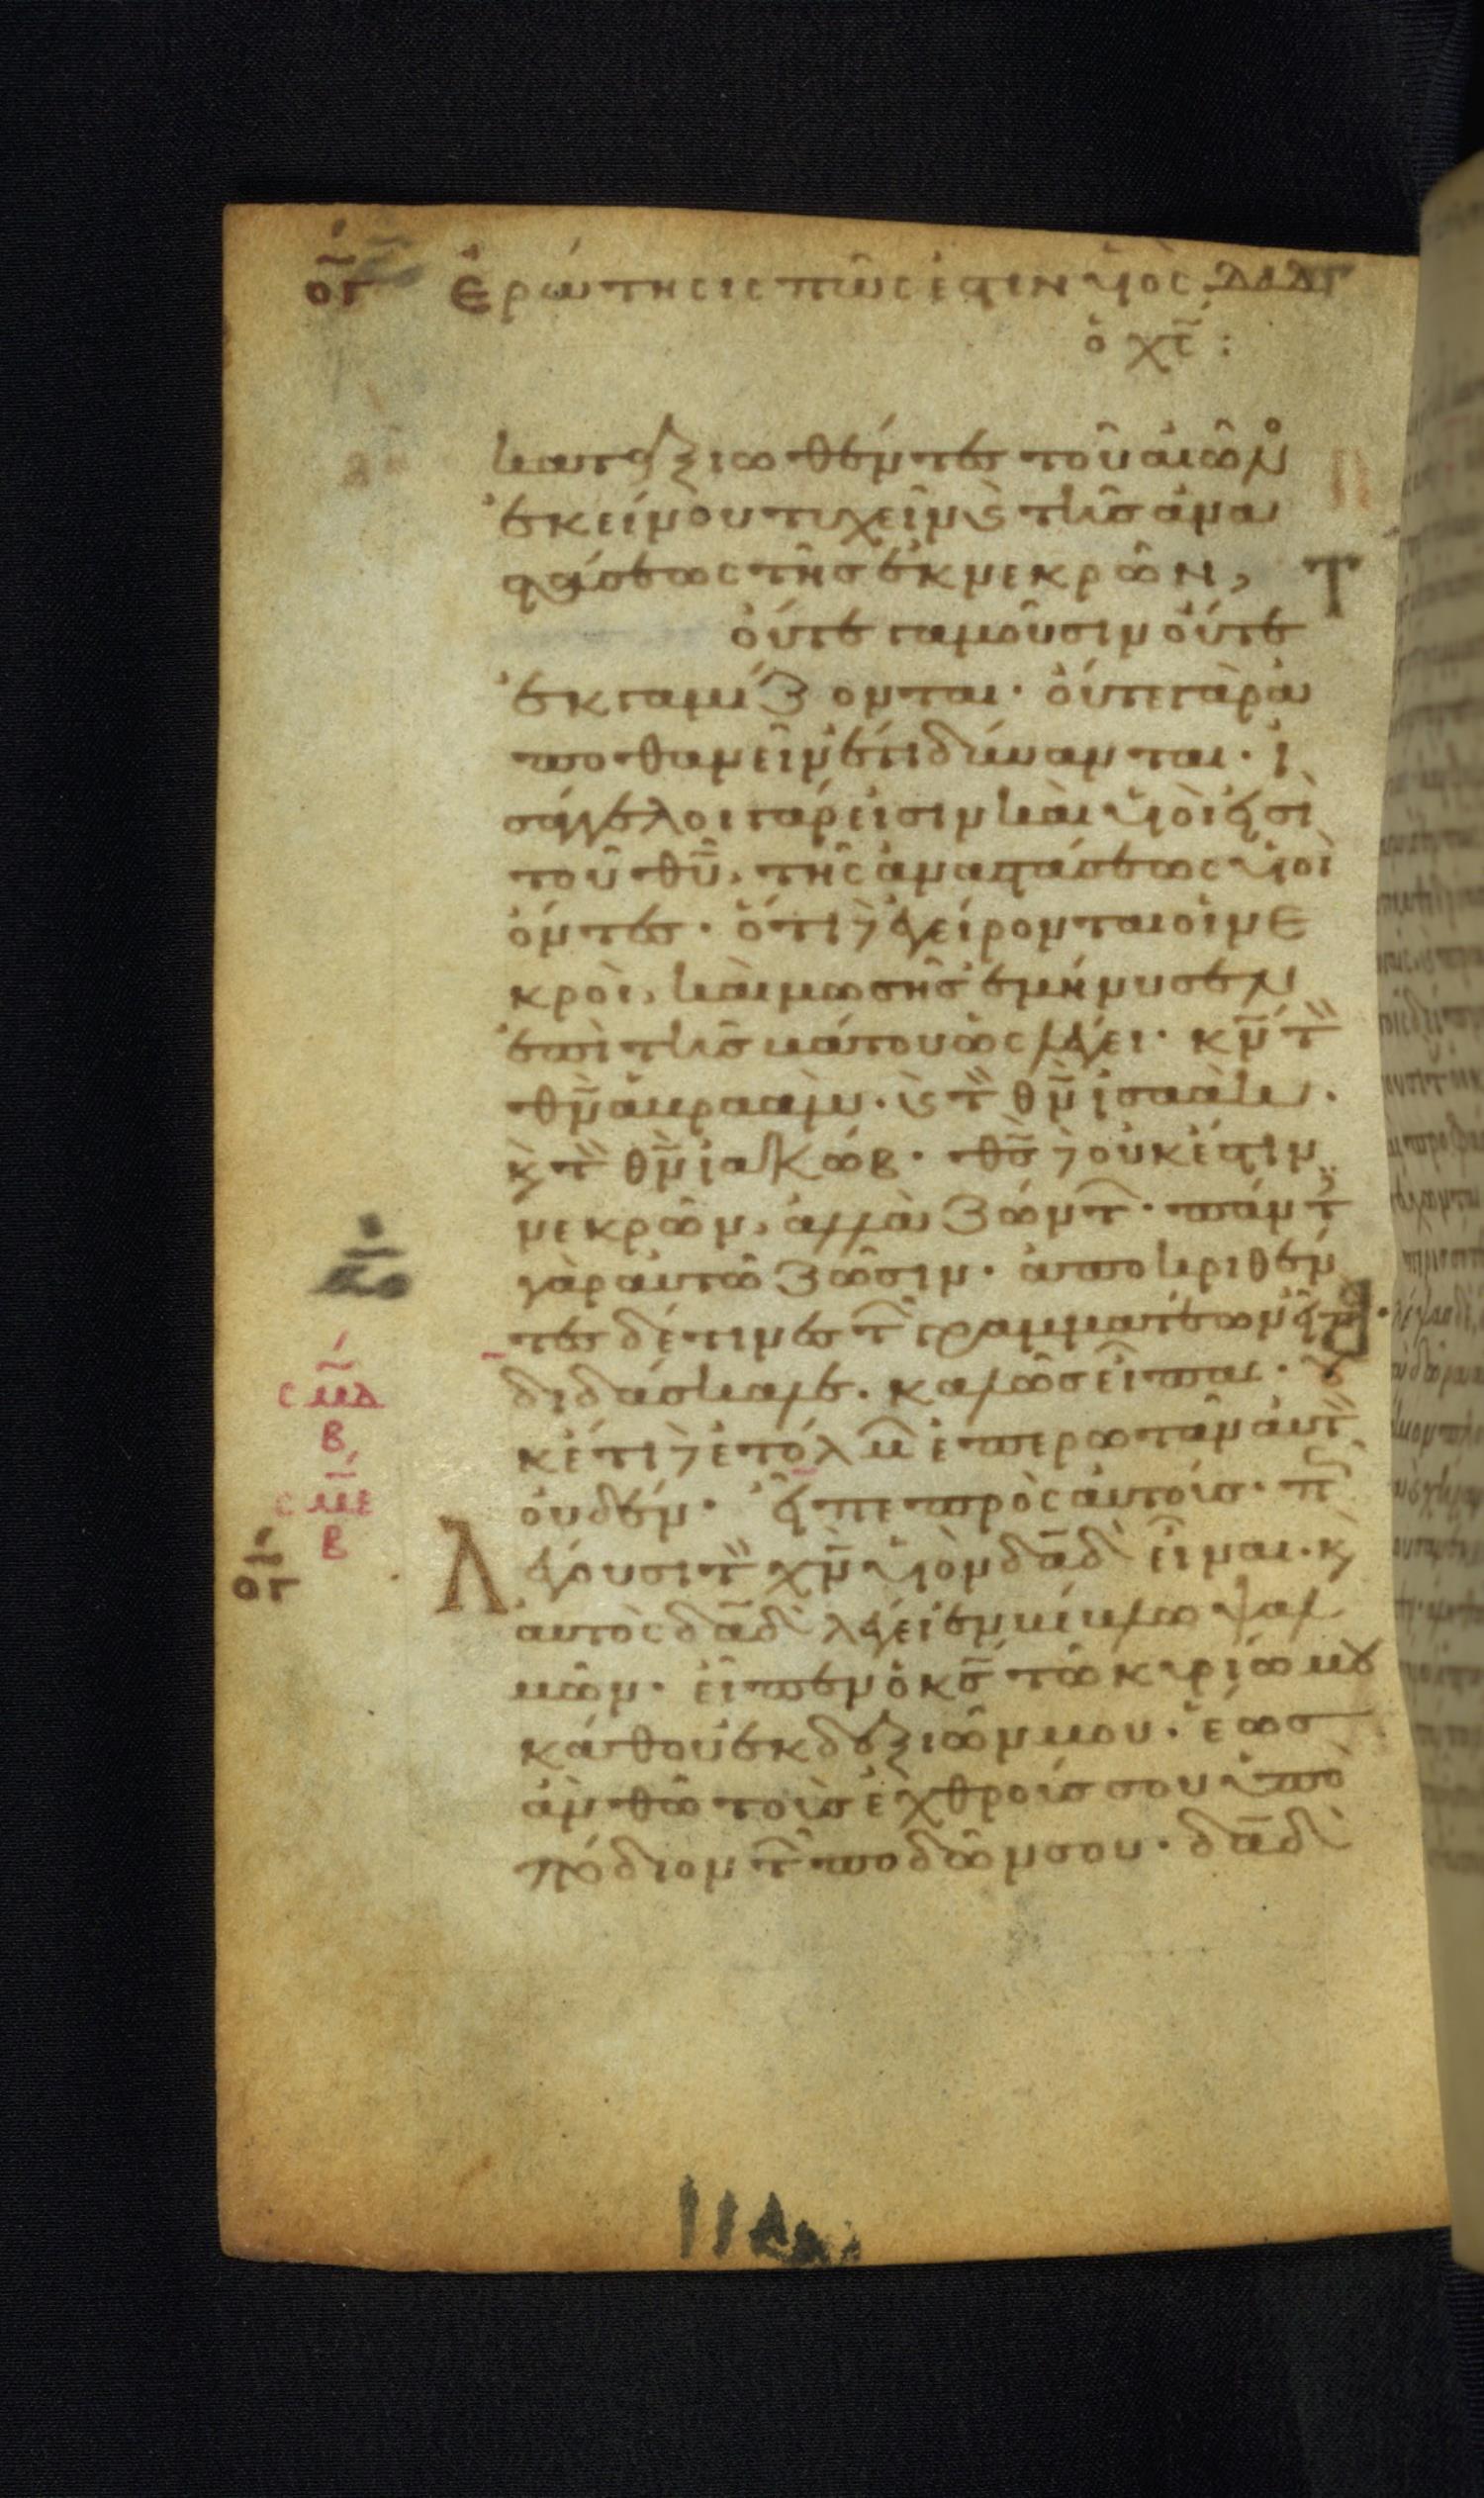 ογ Ἐρώτησις πῶς ἐστιν υἱὸς δαδ
ὁ χς :
καταξιωθέντες τοῦ αἰῶνο
ἐκείνου τυχεῖν κ τῆς ἀνα
στάσεως τῆς ἐκ νεκρῶν,
οὔτε γαμοῦσιν οὔτε
ἐκγαμίζονται · οὔτε γὰρ ἀ
ποθανεῖν ἔτι δύνανται · ἰ
σάγγελοι γάρ εἰσιν καὶ υἱοί εἰσι
τοῦ θυ, τῆς ἀναστάσεως υἱοὶ
ὄντες · ὅτι δὲ ἐγείρονται οἱ νε
κροὶ, καὶ μωσῆς ἐμήνυσεν
ἐπὶ τῆς βάτου ὡς λέγει · κν τ
θν ἀβραάμ · κ τ θν ἰσαάκ ·
κ τ θν ἰακώβ · θς δὲ οὐκ ἔστιν
νεκρῶν, ἀλλὰ ζώντ · πάντ
γὰρ αὐτῷ ζῶσιν · ἀποκριθέν
τες δέ τινες τ γραμματέων εἶπ
διδάσκαλε · καλῶς εἶπας ·
κέτι δὲ ἐτόλμ ἐπερωτᾶν αὐτ
οὐδέν · εἶπε πρὸς αὐτούς · π
λέγουσι τ χν υἱὸν δαδ εἶναι · κ
αὐτὸς δαδ λέγει ἐν βίβλω ψαλ
μῶν · εἶπεν ὁ κς τῷ κυρίω μου
κάθου ἐκ δεξιῶν μου · ἕως
ἂν θῶ τοὺς ἐχθρούς σου ὑπο
πόδιον τ ποδῶν σου · δαδ
σμδ
β
σμε
β
ογ